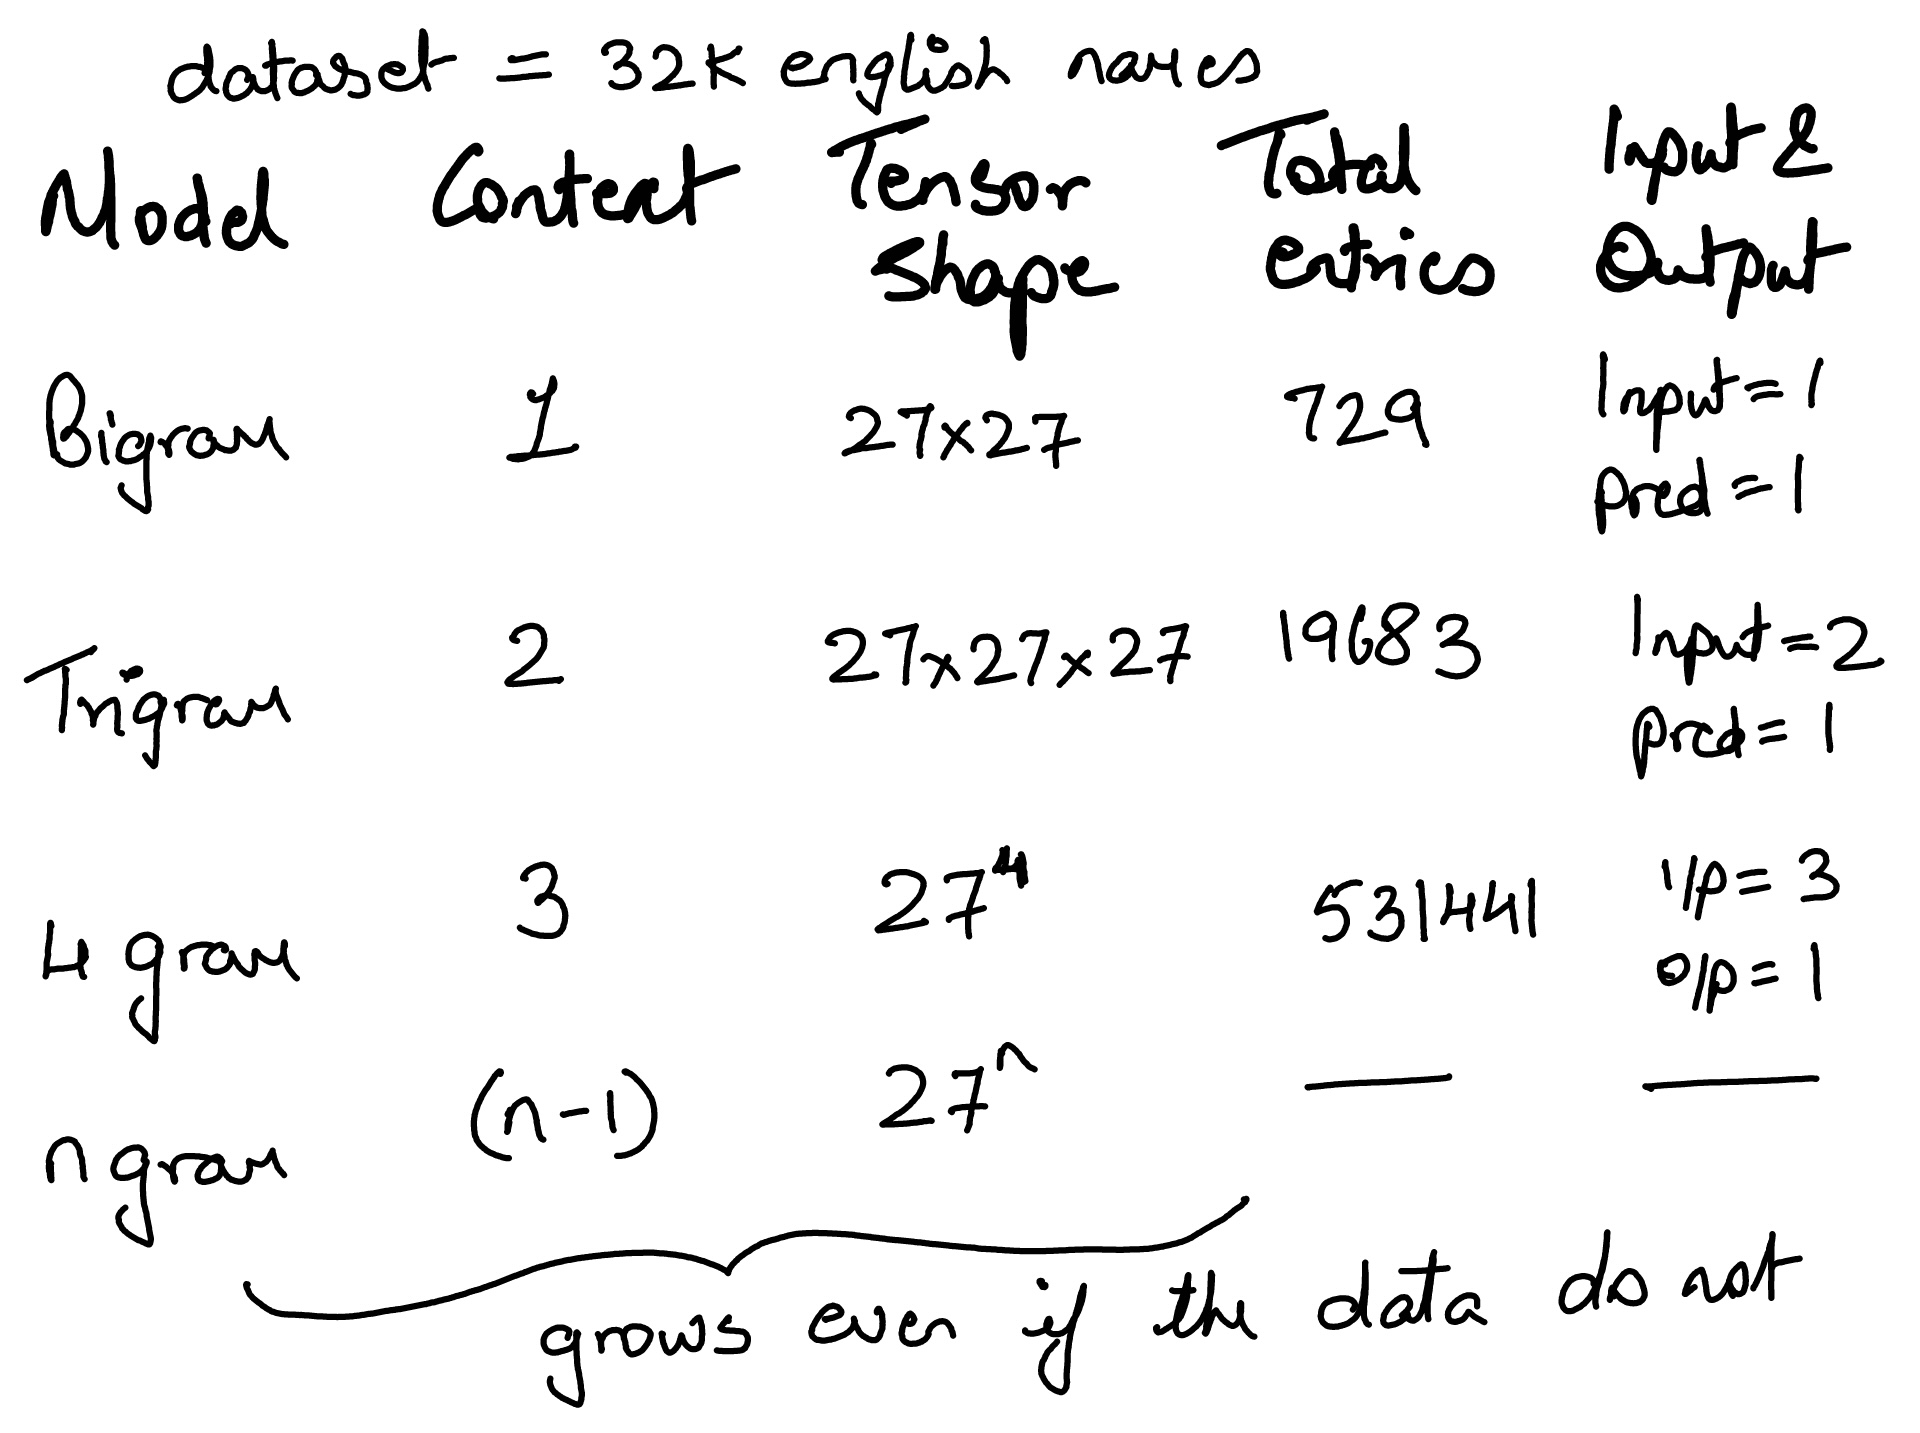 dataset = 32K english names
Model Context Tensor Shape Total entries Input & Output
Bigram 1 27x27 729 Input = 1
pred = 1
Trigram 2 27x27x27 19683 Input = 2
pred = 1
4 gram 3 27⁴ 531441 i/p = 3
o/p = 1
n gram (n-1) 27ⁿ — —
grows even if the data do not